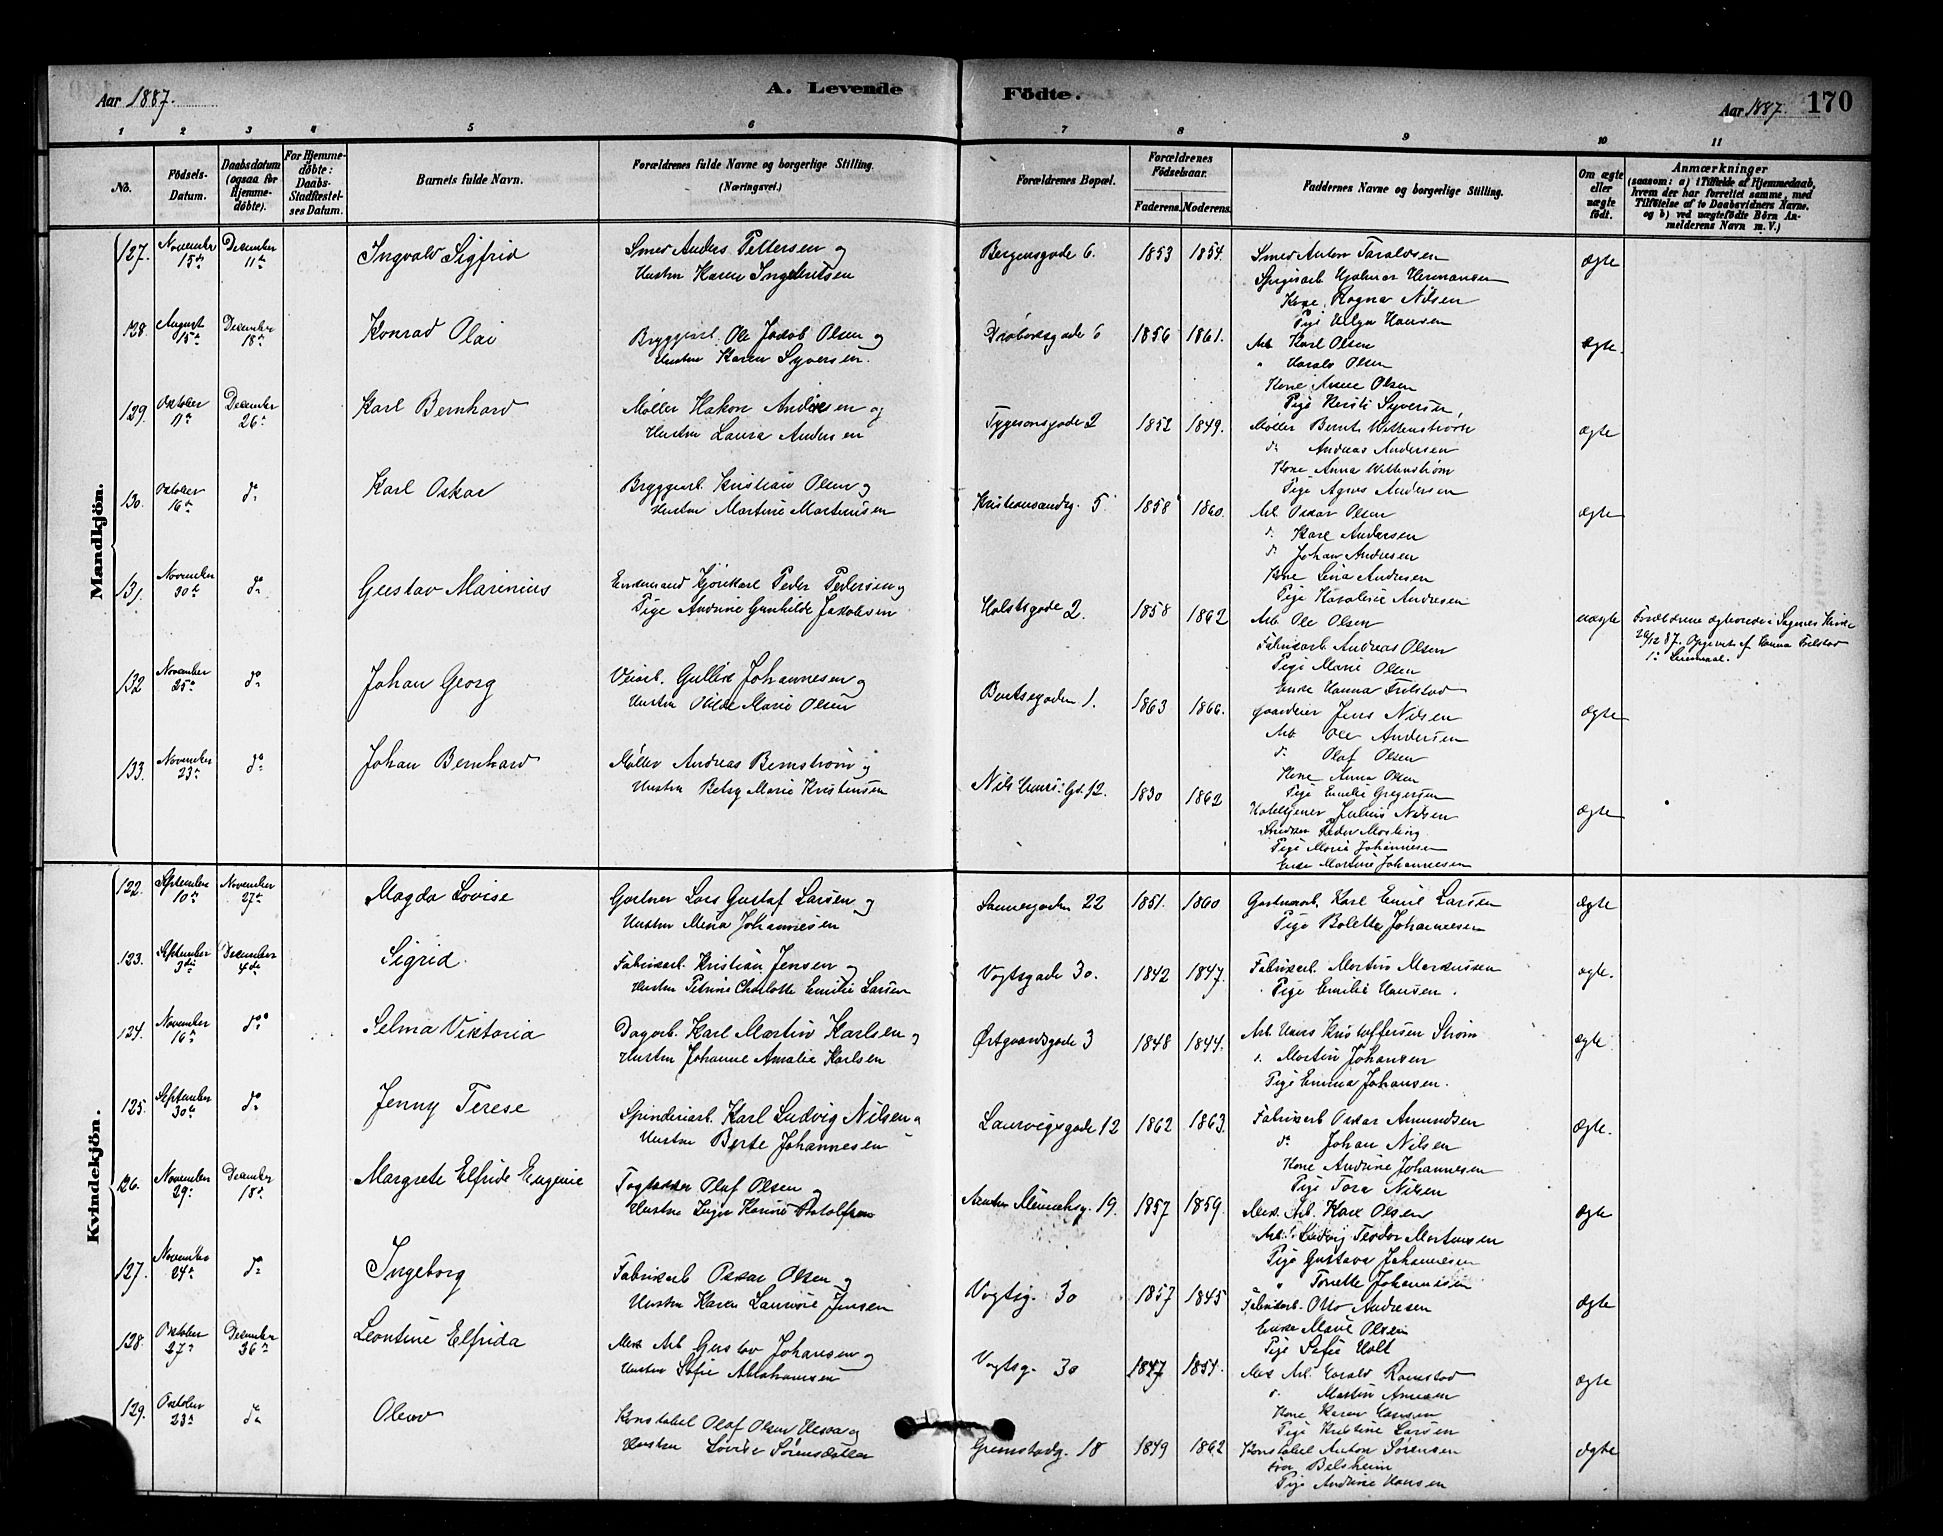 Aar 1887.
A. Levende
Födte.
Aar 1887.
170
1 2 3 4 5 6 7 8 9 10 11
No.
Födsels-Datum.
Daabsdatum (ogsaa for Hjemme-döbte).
For Hjemme-döbte: Daabs-Stadfæstel-ses Datum.
Barnets fulde Navn.
Forældrenes fulde Navne og borgerlige Stilling. (Næringsvei.)
Forældrenes Bopæl.
Forældrenes Födselsaar.
Faderens. Moderens.
Faddernes Navne og borgerlige Stilling.
Om ægte eller uægte födt.
Anmærkninger
(saasom: a) i Tilfælde af Hjemmedaab, hvem der har forrettet samme, med Tilföielse af to Daabsvidners Navne. og b) ved uægtefödte Börn An-melderens Navn m. V.)
Mandkjön.
127. November 15de December 11te Ingvald Sigfrid
Smed Anders Pettersen og
Hustru Karen Ingebritsen
Bergensgade 6. 1853 1854.
Smed Anton Taraldsen
Hjalmar Hermansen
Kone Ragna Nilsen
Pige Helga Hansen
ægte
128. August 15de December 18de Konrad Olai
Bryggearb. Ole Jakob Olsen og
Hustru Karen Syversen.
Drøbaksgade 6 1856 1861.
Arb. Karl Olsen
" Harald Olsen
Kone Anne Olsen
Pige Kersti Syversen,
ægte.
129. Oktober December 26de Karl Bernhard
Møller Hakon Andersen og
Hustru Laura Andersen
Tygesonsgade 2 1852 1849.
Møller Bernt Wettenstrøm
do Andreas Andersen
Kone Anna Wettenstrøm
Pige Agnes Andersen
ægte
130. Oktober 16de do Karl Oskar
Bryggearb. Kristian Olsen og
Hustru Martine Martinisen
Kristiansandsg. 5 1858 1860.
Arb. Oskar Olsen
do Karl Andersen
do Johan Andresen
Kone Lina Andresen
Pige Hansine Andresen
ægte
131. November 30te do Gustav Marinius
Enkemand Kjørekarl Peder Pedersen og
Pige Andrine Gunhilde Jakobsen
Holstsgade 2. 1858 1862
Arb. Ole Olsen
Fabrikarb Andreas Olsen
Pige Marie Olsen
Enke Hanna Frilstad
uægte
Forældrene ægteviede i Sagenes Kirke
26/12 87. Opgivet af Hanna Frilstad
1ste Leiermaal.
132 November 25de do Johan Georg
Veiarb. Gullik Johannesen og
Hustru Otilde Marie Olsen
Bentsegaden 1. 1863 1866.
Gaardeier Jens Nilsen
Arb. Ole Andersen
do Olaf Olsen
Kone Anna Olsen
Pige Emilie Gregersen
ægte
133. November 23de do Johan Bernhard
Møller Andreas Bernstrøm og
Hustru Betsy Marie Kristensen
Nils Hansens Gd. 12. 1830 1862
Hoteltjener Julius Nilsen
Snedker Peder Mosling
Pige Marie Johannesen
Enke Martine Johannesen
ægte
Kvindekjön.
122. September 10de November 27de Magda Lovise
Gartner Lars Gustaf Larsen og
Hustru Mena Johannesen
Sannergaden 22 1851. 1860
Gartnerarb. Karl Emil Larsen
Pige Bolette Johannesen
ægte
123. September 3die December 4de Sigrid.
Fabrikarb. Kristian Jensen og
Hustru Petrine Charlotte Emilie Larsen
Vogtsgade 30. 1842 1847.
Fabrikarb. Martin Markussen
Pige Emilie Hansen.
ægte.
124. November 16de do Selma Viktoria
Dagarb. Karl Martin Karlsen og
Hustru Johanne Amalie Karlsen
Østgaardsgade 3 1848 1844.
Arb. Hans Kristoffersen Strøm
do Martin Johansen
Pige Emma Johansen.
ægte.
125. September 30te do Jenny Terese
Spinderiarb. Karl Ludvig Nilsen og
Hustru Berte Johannesen
Laurvigsgade 12 1862 1863.
Fabrikarb Oskar Amundsen
do Johan Nilsen
Kone Andrine Johannesen
Pige Tora Nilsen
ægte.
126. November 29de December 18de Margrete Elfride Eugenie
Olaf Olsen og
Hustru Inger Karine
19. 1857 1859.
Mek. Arb. Karl Olsen
Arb. Ludvig Teodor Mortensen
Pige Gustava Johannesen
" Tonette Johannesen
ægte
127. November 24de do Ingeborg
Fabrikarb Oskar Olsen og
Hustru Karen Laurine Jensen
Vogtsg. 30 1857 1845
Fabrikarb. Otto Andresen
Enke Marie Olsen
Pige Sofie Holt
ægte
128. Oktober 27de December 26de Leontine Elfrida
Mek Arb Gustav Johansen og
Hustru Sofie Abrahamsen
Vogtsg. 30 1847 1854.
Mek Arb. Harald Ramstad
do Martin Amesen
Kone Karen Hansen
Pige Kristine Larsen
ægte
129. Oktober 23de do Olav
Konstabel Olaf Olsen og
Hustru Lovise Sørensdatter
Grimstadg. 18 1849 1862
Konstabel Anton Sørensen
Belsheim
Pige Andrine Hansen
ægte